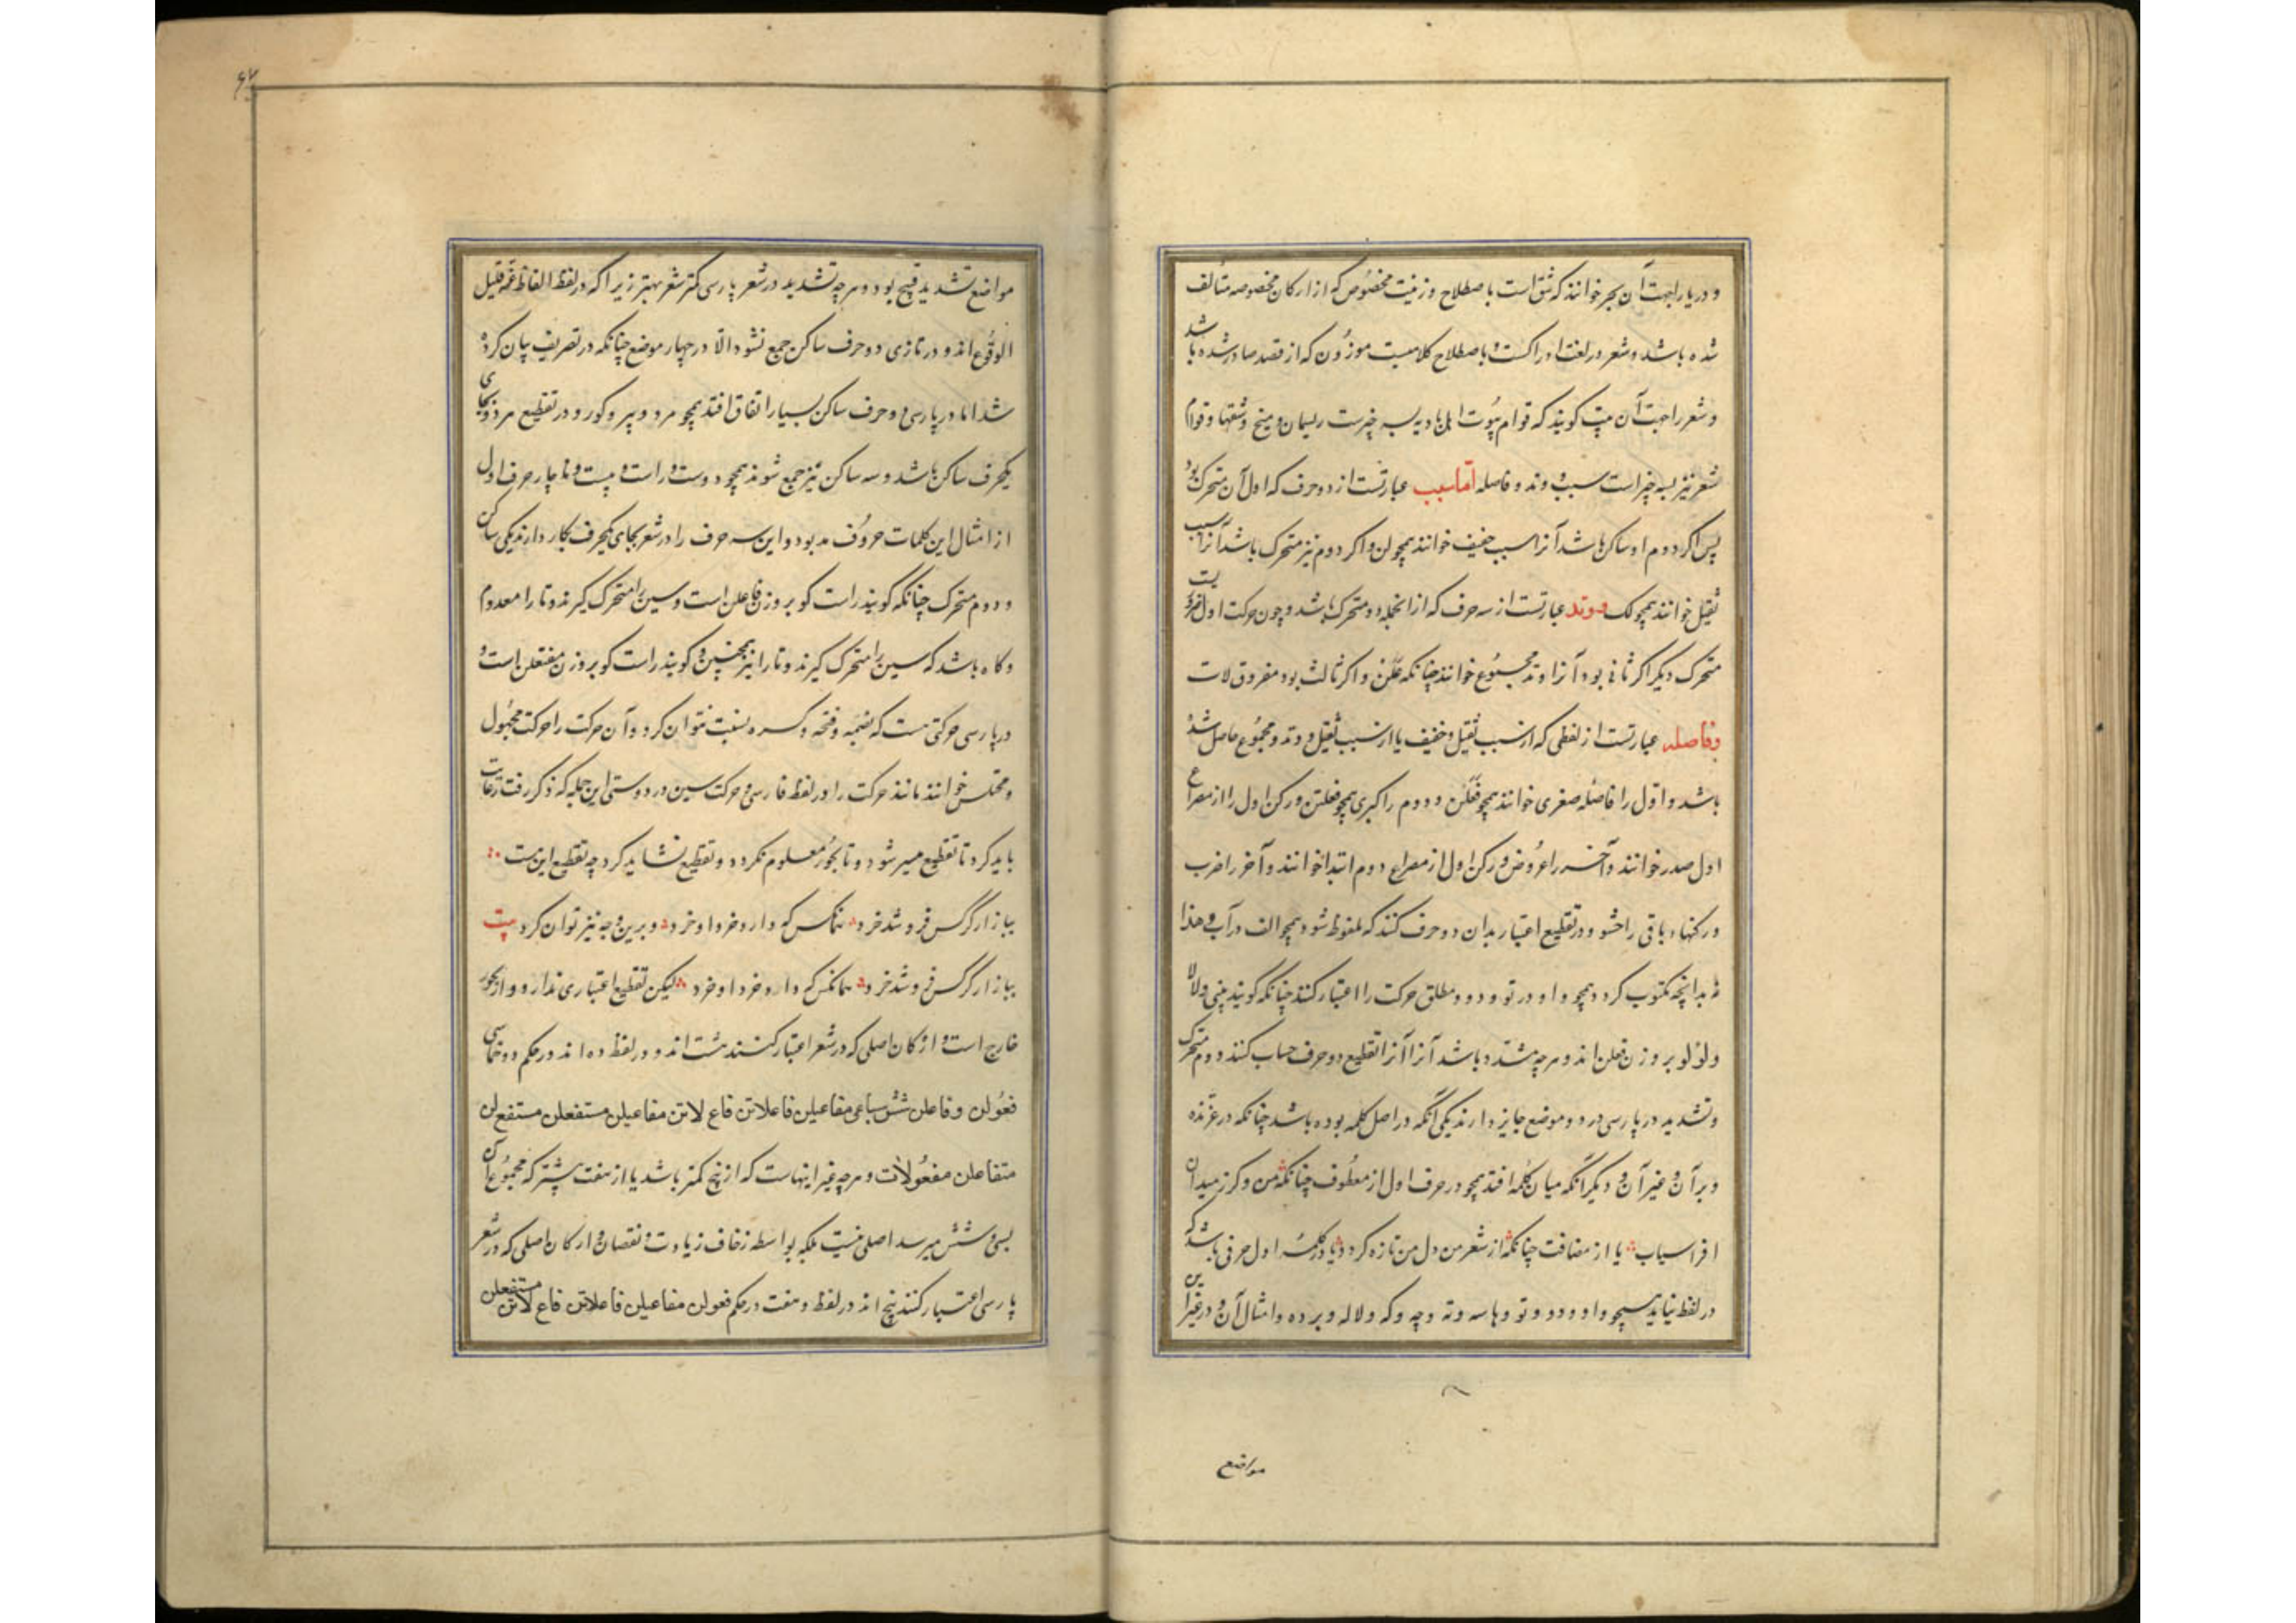 و دریا را جهت آن بحر خوانند که شق است باصطلاح وزنیست مخصوص که از ارکان مخصوصه متألف
شده باشد و شعر در لغت ادراکست و باصطلاح کلامیست موزون که از قصد صادر شده باشد
و شعر را جهت آن بیت کویند که قوام بیوت اهل بادیه بسه چیزست ریسمان و میخ و شقها و قوام
شعر نیز بسه چیز است سبب و وتد و فاصله اما سبب عبارتست از دو حرف که اول آن متحرک بود
پس اکر دوم او ساکن باشد آنرا سبب خفیف خوانند همچو لن و اکر دوم نیز متحرک باشد آنرا سبب
ثقیل خوانند همچو لک و وتد عبارتست از سه حرف که از انجمله دو متحرک باشد و چون حرکت اول ضروریست
متحرک دیکر اکر ثانی بود آنرا وتد مجموع خوانند چنانکه علن و اکر ثالث بود مفروق لات
و فاصله عبارتست از لفظی که از سبب ثقیل و خفیف یا از سبب ثقیل و وتد و مجموع حاصل شده
باشد و اول را فاصله صغری خوانند همچو فعلن و دوم را کبری همچو فعلتن و رکن اول را از مصراع
اول صدر خوانند و آخر را عروض و رکن اول از مصراع دوم ابتدا خوانند و آخر را ضرب
و رکنهاء باقی را حشو و در تقطیع اعتبار بدان دو حرف کنند که ملفوظ شود همچو الف در آب و هذا
نه بدانچه مکتوب کردد همچو واو در تو و دو و مطلق حرکت را اعتبار کنند چنانکه کویند بینی و لالا
و لؤلؤ بر وزن فعلن اند و هر چه مشدد باشد آنرا آنرا تقطیع دو حرف حساب کنند دوم متحرک
و تشدید در پارسی در دو موضع جایز دارند یکی آنکه در اصل کلمه بوده باشد چنانکه در غرنده
و بران و غیر آن و دیکر آنکه میان کلمه افتد همچو در حرف اول از معطوف چنانکه من و کرز میدان
افراسیاب یا از مضافت چنانکه از شعر من دل من تازه کردد یا در کلمه اول حرفی باشد که
در لفظ نیاید همچو واو دو و تو و هاء سه و نه و چه و که و لاله و برده و امثال آن و در غیر این
مواضع
مواضع تشدید قبیح بود و هر چه تشدید در شعر پارسی کمتر شعر بهتر زیرا که در لفظ الفاظ غیر قلیل
الوقوع اند و در تازی دو حرف ساکن جمع نشود الا در چهار موضع چنانکه در تصریف بیان کرده
شد اما در پارسی دو حرف ساکن بسیار اتفاق افتد همچو مرد و پیر و کور و در تقطیع هر دو بجای
یکحرف ساکن باشد و سه ساکن نیز جمع شوند همچو دوست و راست و بیست و ناچار حرف اول
از امثال این کلمات حروف مد بود و این سه حرف را در شعر بجای یکحرف بکار دارند یکی ساکن
و دوم متحرک چنانکه کویند راست کو بر وزن فاعلن است و سین را متحرک کیرند و تا را معدوم
و کاه باشد که سین را متحرک کیرند و تا را نیز همچنین و کویند راست کو بر وزن مفتعلن است و
در پارسی حرکتی هست که بضمه و فتحه و کسره نسبت نتوان کرد و آن حرکت را حرکت مجهول
و مختلس خوانند مانند حرکت را در لفظ فارسی و حرکت سین در دوستی این جمله که ذکر رفت رعایت
باید کرد تا تقطیع میسر شود و تا بحور معلوم نکردد و تقطیع نشاید کرد چه تقطیع این بیت
ببازار کرکس فروشد خرد همانکس که دارد خرد او خرد و برین وجه نیز توان کرد بیت
ببازار کرکس فروشد خرد همانکس که دارد خرد او خرد لیکن تقطیع اعتباری ندارد و از بحور
خارج است و ارکان اصلی که در شعر اعتبار کنند هشت اند و در لفظ ده اند در حکم دو خماسی
فعولن و فاعلن شش سباعی مفاعیلن فاعلاتن فاع لاتن مفاعیلن مستفعلن مستفع لن
متفاعلن مفعولات و هر چه غیر اینهاست که از پنج کمتر باشد یا از هفت بیشتر که مجموع آن
بسی و شش میرسد اصلی نیست بلکه بواسطه زحاف زیادت و نقصان و ارکان اصلی که در شعر
پارسی اعتبار کنند پنج اند در لفظ و هفت در حکم فعولن مفاعیلن فاعلاتن فاع لاتن مستفعلن